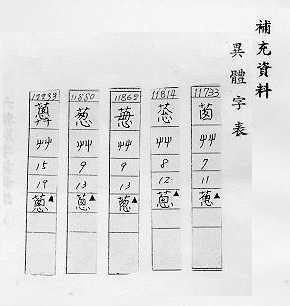 補充資料
異體字表
11733
艸
7
11
蔥▲
11814
艸
8
12
蔥▲
11869
艸
9
13
蔥▲
11880
葱
艸
9
13
蔥▲
12233
艸
15
19
蔥▲